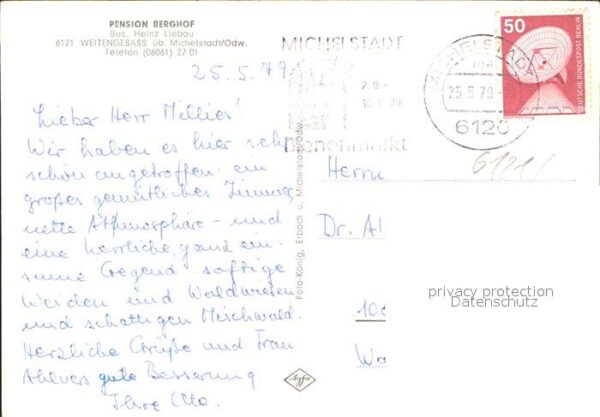 PENSION BERGHOF
Bes. Heinz Liebau
6121 WEITENGESÄSS üb. Michelstadt/Odw.
Telefon (06061) 27 01
25.5.79
Lieber Herr Millies!
Wir haben es hier sehr
schön angetroffen: ein
großes gemütliches Zimmer,
nette Athmosphäre - und
eine herrliche, ganz ein-
same Gegend saftige
Weiden und Waldwiesen
und schattigen Mischwald.
Herzliche Grüße und Frau
Ahlvers gute Besserung
Ihre
Foto-König, Erbach u. Michelstadt/Odw.
MICHELSTADT
2.6.-
10.6.79
Bienenmarkt
MICHELSTADT
25.5.79
6120
50
DEUTSCHE BUNDESPOST BERLIN
6121/
Herrn
Dr. Al
privacy protection
Datenschutz